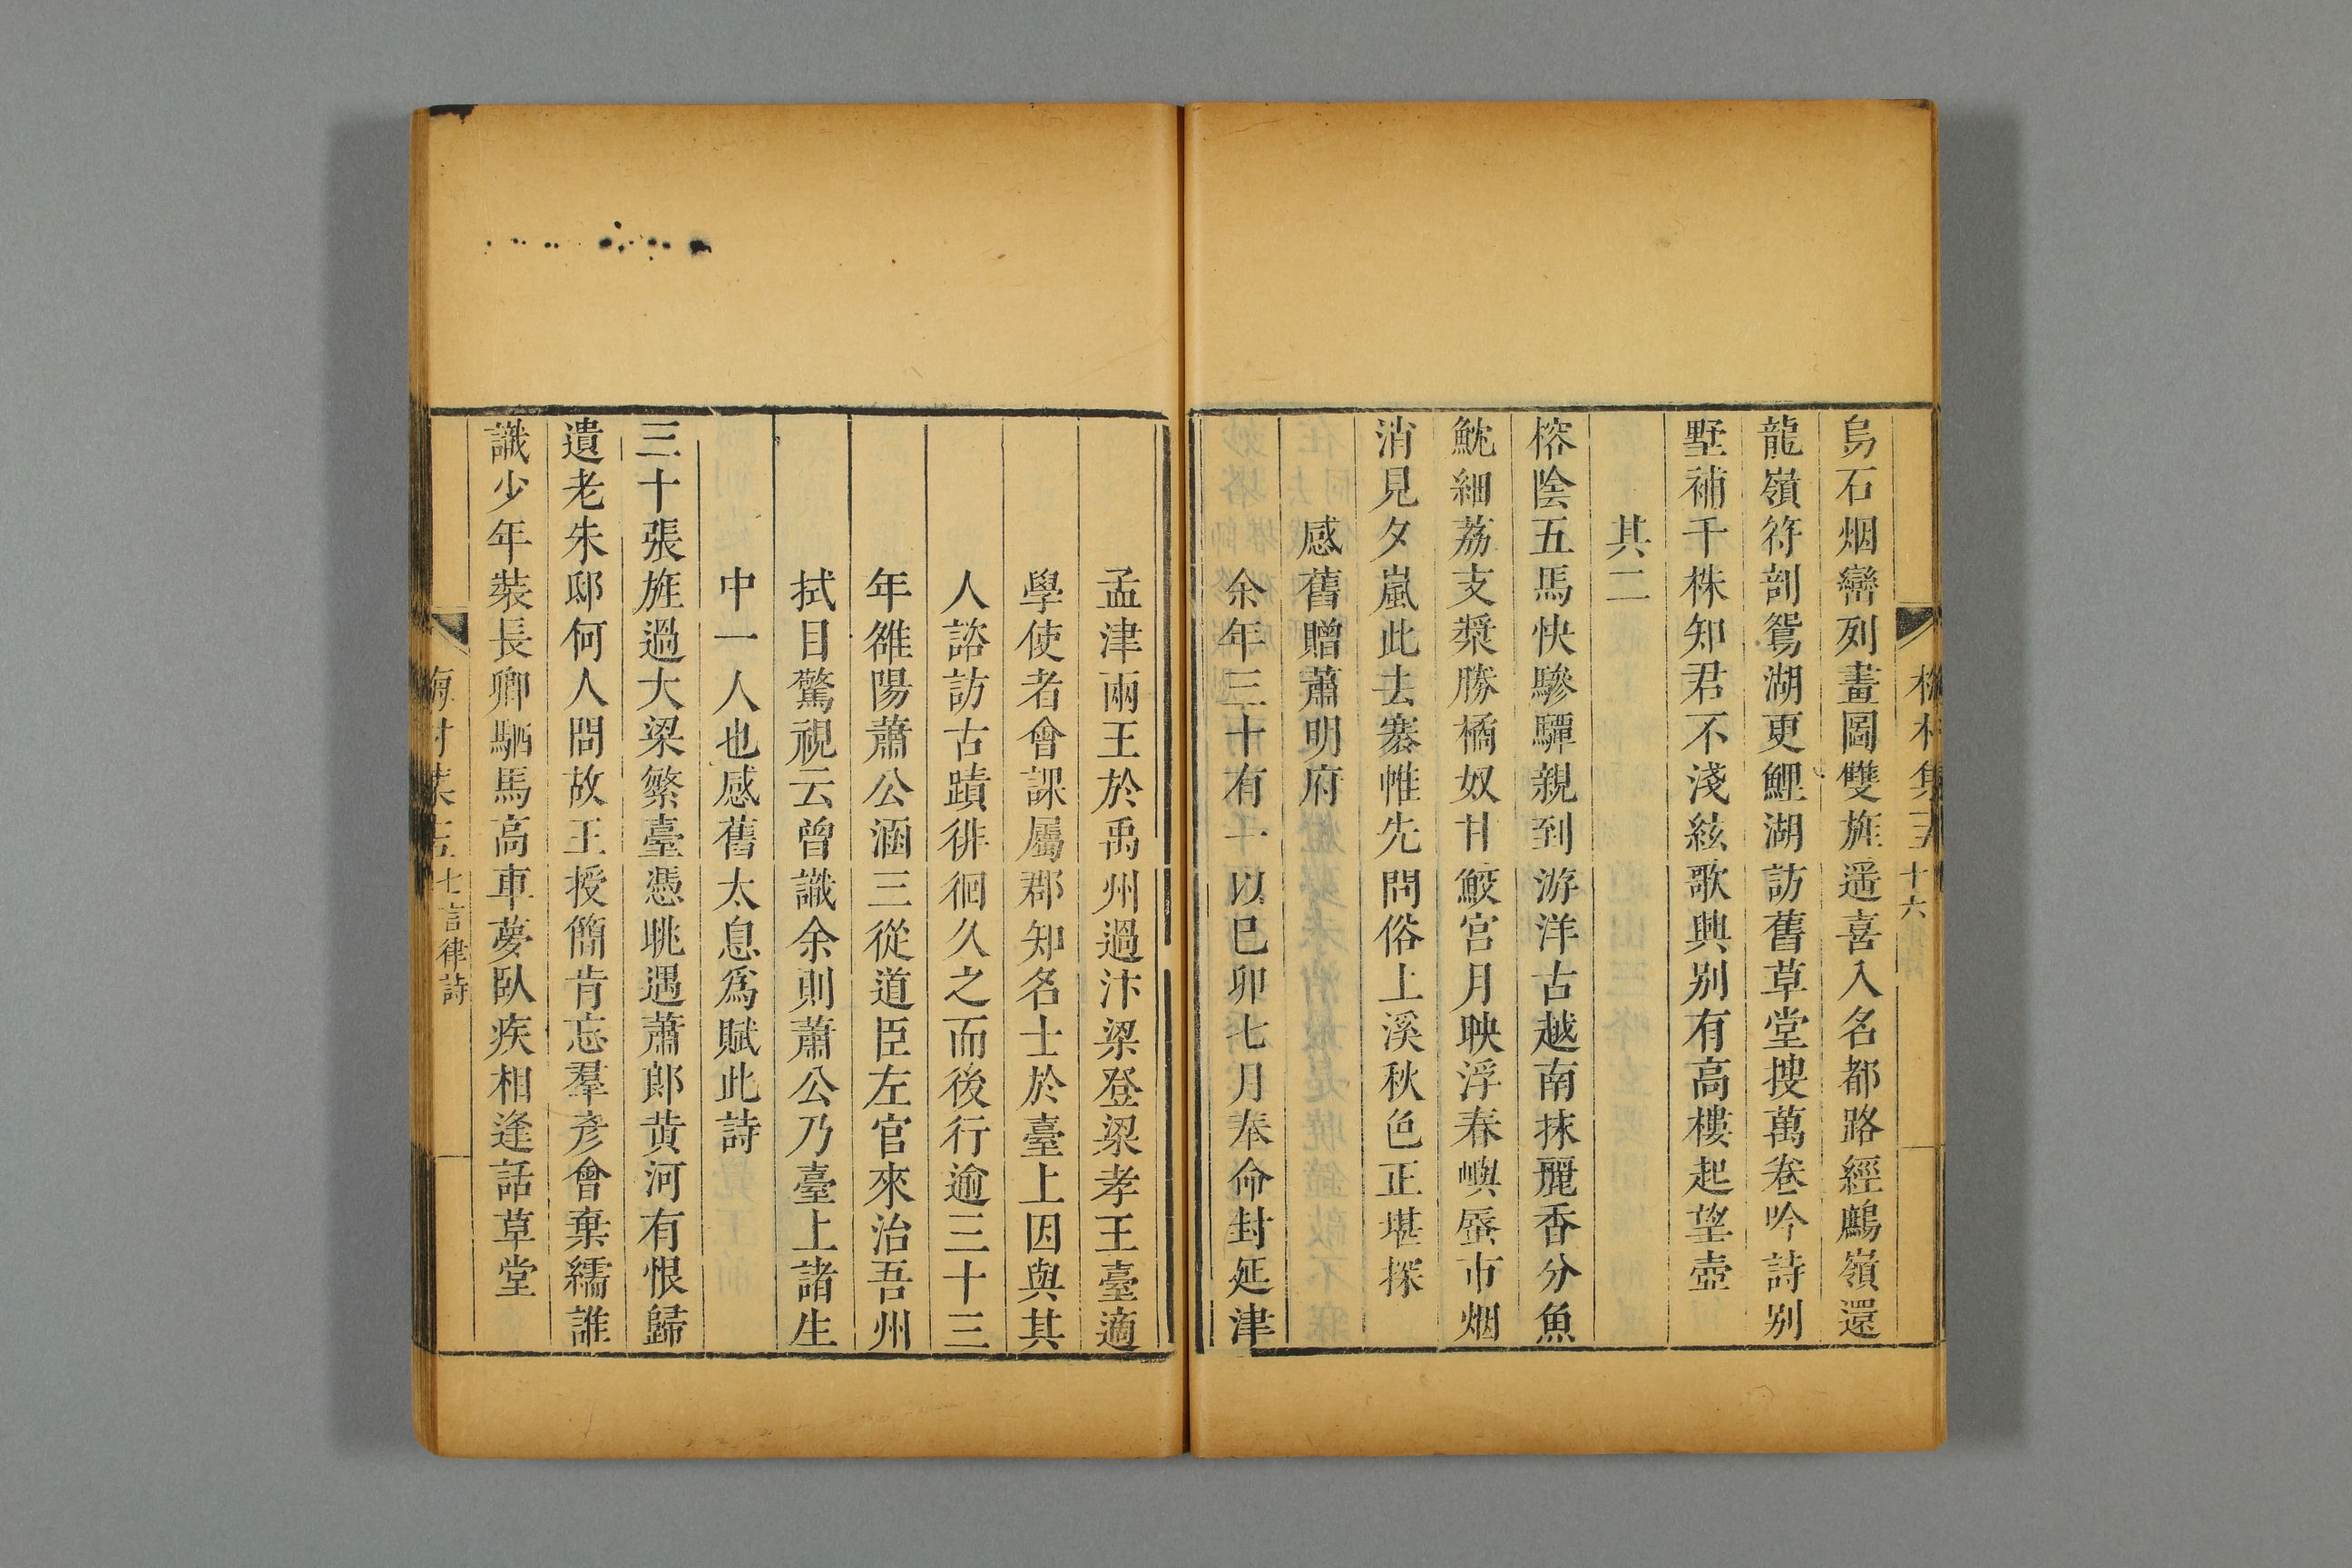 烏石烟巒列畫圖雙旌遥喜入名都路經鷓嶺還
龍嶺符剖鴛湖更鯉湖訪舊草堂搜萬卷吟詩别
墅補千株知君不淺絃歌興别有高樓起望壺
其二
榕陰五馬快驂驔親到游洋古越南抹麗香分魚
魫細荔支槳勝橘奴甘鮫宮月映浮春嶼蜃市烟
消見夕嵐此去褰帷先問俗上溪秋色正堪探
感舊贈蕭明府
余年三十有一以已卯七月奉命封延津
孟津兩王於禹州過汴梁登梁孝王臺適
學使者會課屬郡知名士於臺上因與其
人諮訪古蹟徘徊久之而後行逾三十三
年雒陽蕭公涵三從道臣左官來治吾州
拭目驚視云曾識余則蕭公乃臺上諸生
中一人也感舊太息爲賦此詩
三十張旌過大梁繁臺憑眺遇蕭郎黄河有恨歸
遺老朱邸何人問故王授簡肯忘羣彦會棄繻誰
識少年裝長卿駟馬高車夢臥疾相逢話草堂
七言律詩